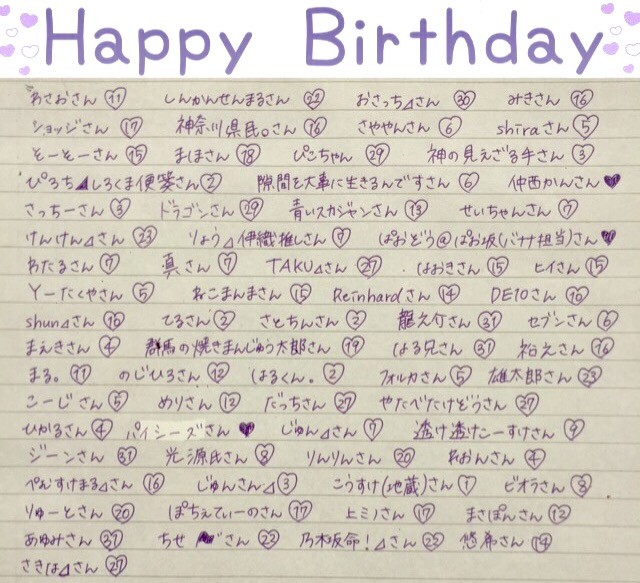 Happy Birthday
わさおさん 11 しんかんせんまるさん 22 おさっち⊿さん 30 みきさん 16
ショッジさん 17 神奈川県民。さん 16 さややんさん 6 shiraさん 5
そーそーさん 15 まほまさん 18 ぴこちゃん 29 神の見えざる手さん 3
ぴろち⊿しろくま便箋さん 2 隙間を大事に生きるんですさん 6 仲西かんさん
さっちーさん 3 ドラゴンさん 29 青いスカジャンさん 13 せいちゃんさん 7
けんけん⊿さん 23 りょう⊿伊織推しさん 7 ぱおどう@ぱお坂(バナナ担当)さん
わたるさん 7 真さん 7 TAKU⊿さん 27 はおきさん 15 ヒイさん 15
Yーたくやさん 5 ねこまんまさん 15 Reinhardさん 14 DE10さん 10
shun⊿さん 16 てるさん 2 さとちんさん 2 龍之介さん 31 セブンさん 6
まえきさん 4 群馬の焼きまんじゅう太郎さん 19 はる兄さん 31 裕えさん 16
まる。 11 のじひろさん 12 はるくん。 2 フォルカさん 5 雄太郎さん 23
こーじさん 5 めりさん 12 だっちさん 27 やたべたけどうさん 27
ひかるさん 4 パイシーズさん じゅん⊿さん 7 透け透けこーすけさん 9
ジーンさん 31 光源氏さん 8 りんりんさん 20 れおんさん 4
ぺむすけまる⊿さん 16 じゅんさん⊿ 3 こうすけ(地蔵)さん 1 ビオラさん 8
りゅーとさん 20 ぽちぇてぃーのさん 17 ヒミノさん 17 まさぽんさん 12
あゆみさん 31 ちせ さん 22 乃木坂命!⊿さん 25 悠希さん 14
さきは⊿さん 27